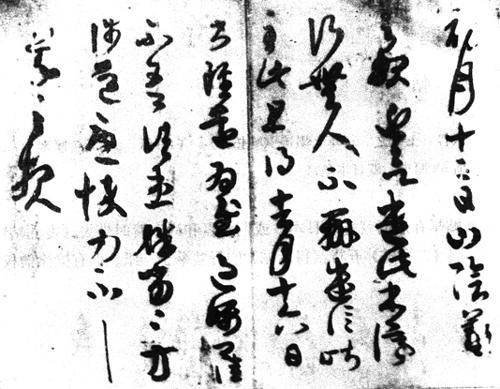 初月十二日山陰羲
之報近欲遣此書停
行無人不辦遣信昨
至此且得去月十六日
書雖遠為慰過囑
不吾諸患殊劣殊劣方
涉道憂悴力不一一
羲之報